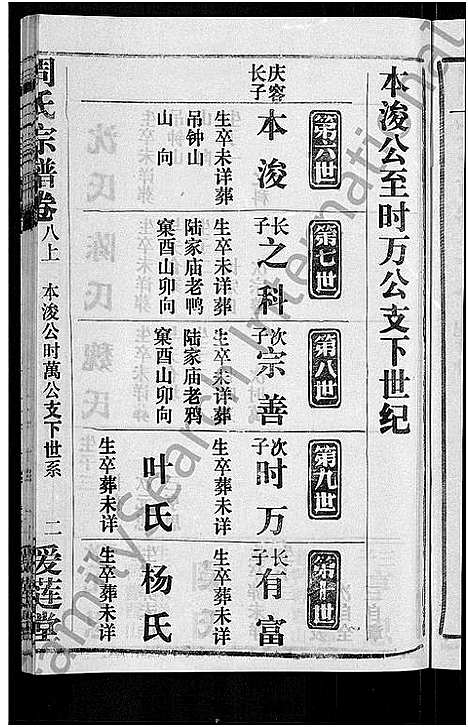 本浚公至时万公支下世纪
第六世
庆容
长子
本浚
生卒未详葬
吊钟山
山向
第七世
长
子
之科
生卒未详葬
陆家庙老鸭
窠酉山卯向
第八世
次
子
宗善
生卒未详葬
陆家庙老鸦
窠酉山卯向
第九世
次
子
时万
生卒葬未详
叶氏
生卒葬未详
第十世
长
子
有富
生卒葬未详
杨氏
生卒葬未详
周氏宗谱卷八上 本浚公时萬公支下世系 二 爱莲堂
FamilySearch International